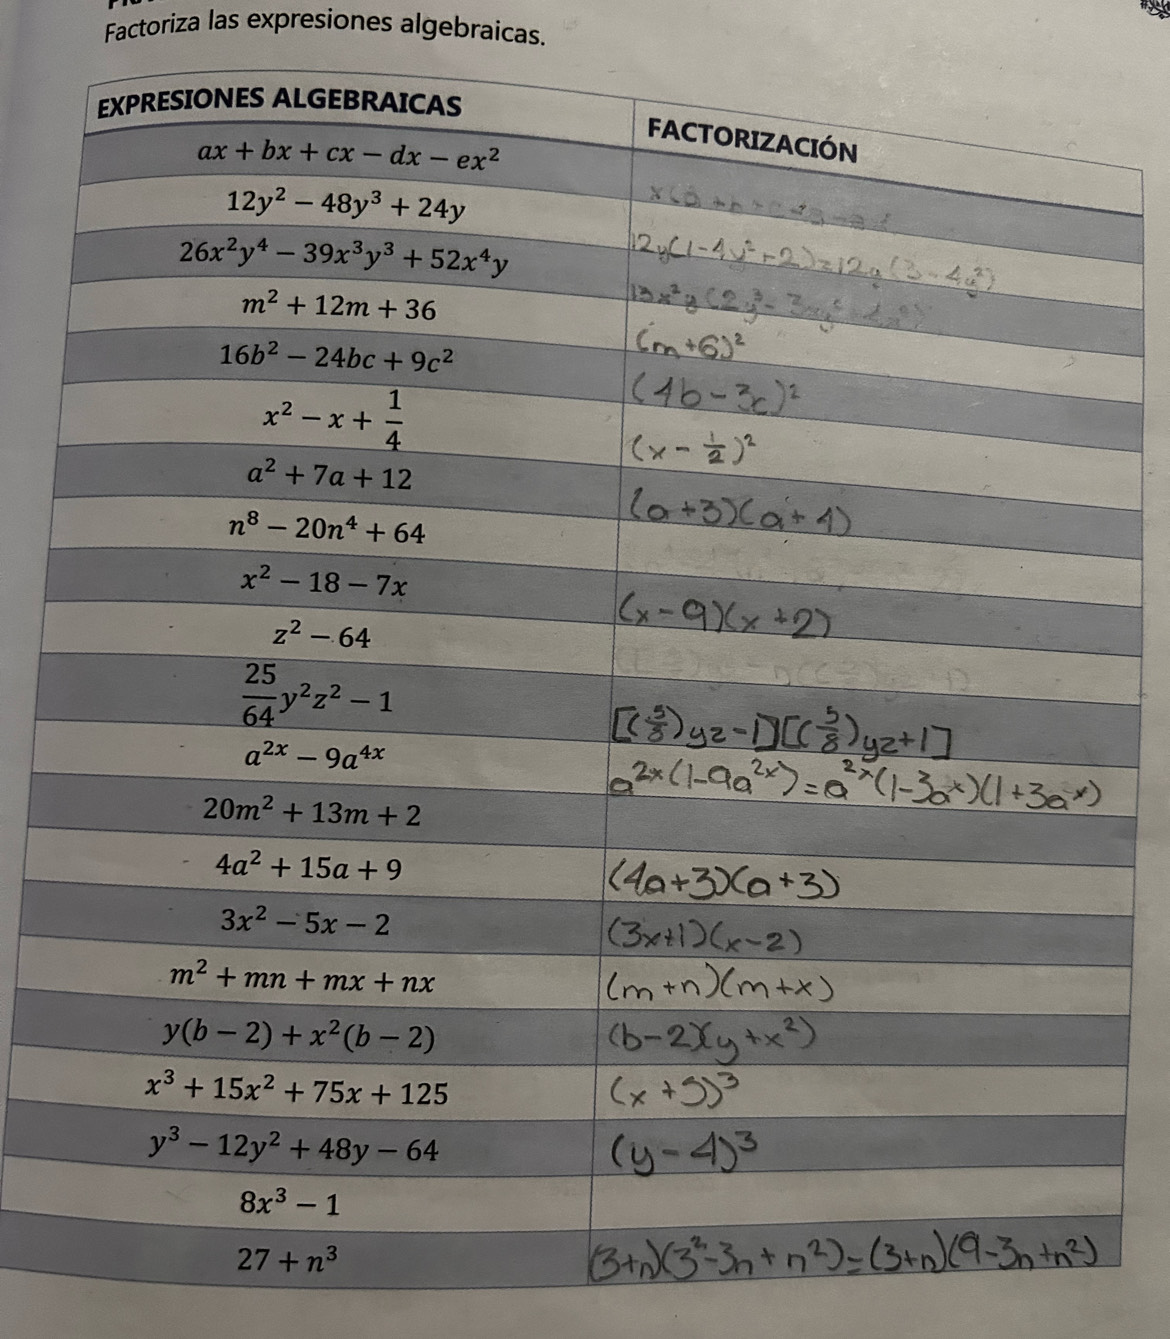 Factoriza las expresiones algebraicas.
EXPRESIONES ALGEBRAICAS FACTORIZACIÓN
ax + bx + cx − dx − ex²
12y² − 48y³ + 24y 12y(1-4y²+2)=12y(3-4y²)
26x²y⁴ − 39x³y³ + 52x⁴y
m² + 12m + 36 (m+6)²
16b² − 24bc + 9c² (4b-3c)²
x² − x + 1/4 (x - 1/2)²
a² + 7a + 12 (a+3)(a+4)
n⁸ − 20n⁴ + 64
x² − 18 − 7x (x-9)(x+2)
z² − 64
25/64 y²z² − 1 [(5/8)yz-1][(5/8)yz+1]
a²ˣ − 9a⁴ˣ a²ˣ(1-9a²ˣ)=a²ˣ(1-3aˣ)(1+3aˣ)
20m² + 13m + 2
4a² + 15a + 9 (4a+3)(a+3)
3x² − 5x − 2 (3x+1)(x-2)
m² + mn + mx + nx (m+n)(m+x)
y(b − 2) + x²(b − 2) (b-2)(y+x²)
x³ + 15x² + 75x + 125 (x+5)³
y³ − 12y² + 48y − 64 (y-4)³
8x³ − 1
27 + n³ (3+n)(3²-3n+n²)=(3+n)(9-3n+n²)